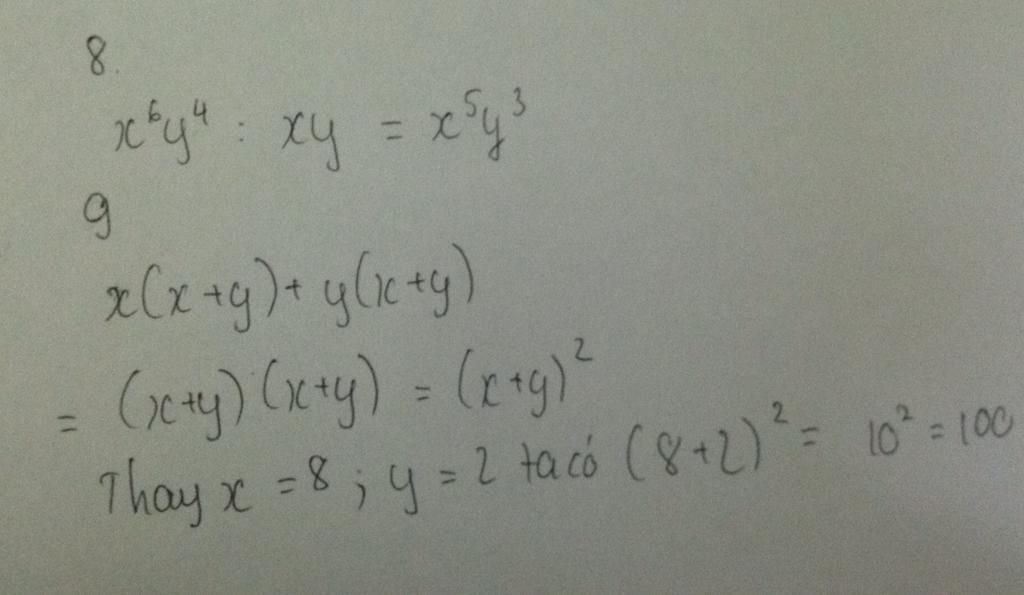 8.
x⁶y⁴ : xy = x⁵y³
9
x(x+y)+ y(x+y)
= (x+y)(x+y) = (x+y)²
Thay x = 8 ; y = 2 ta có (8+2)² = 10² = 100